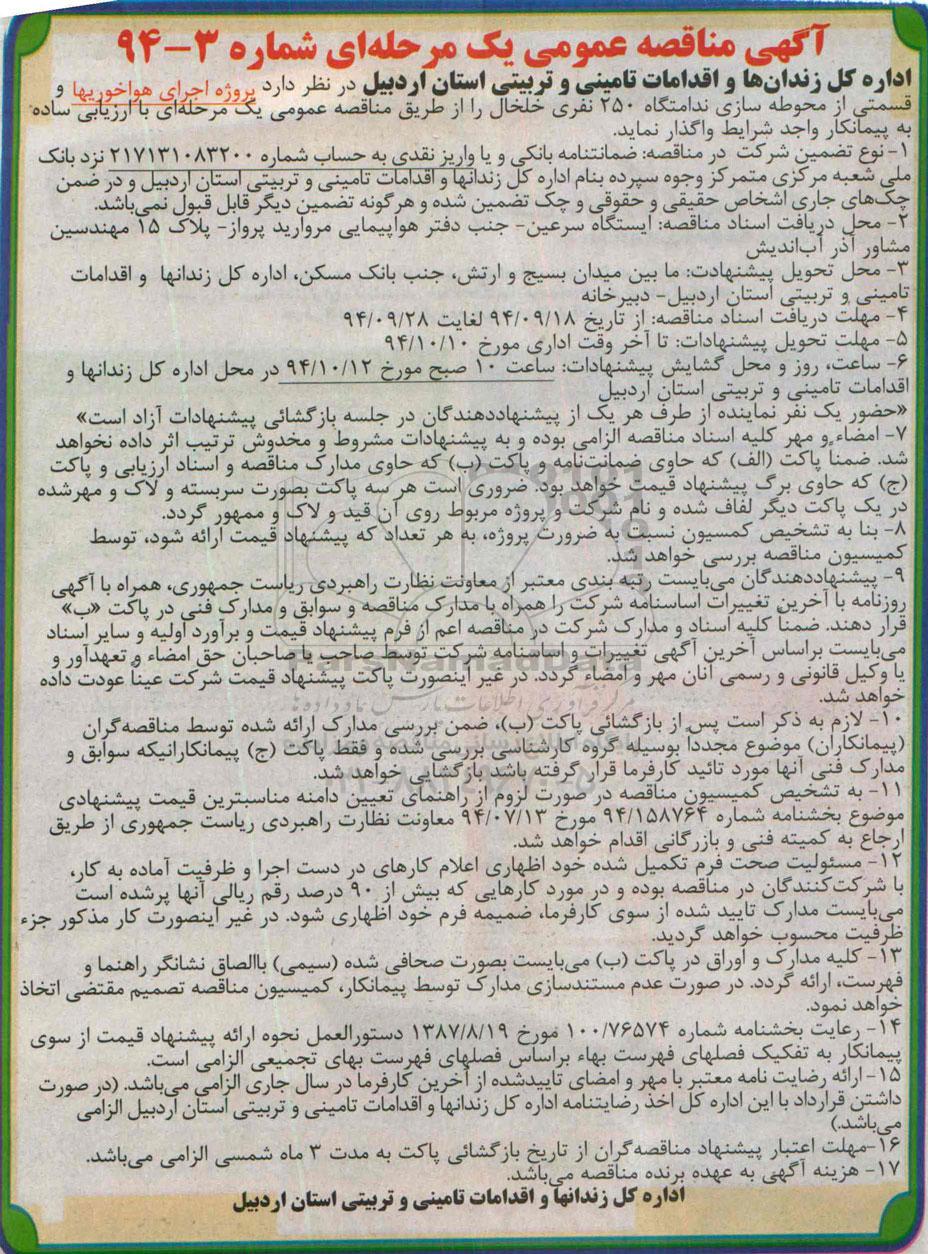 آگهی مناقصه عمومی یک مرحله‌ای شماره ۳-۹۴
اداره کل زندان‌ها و اقدامات تامینی و تربیتی استان اردبیل در نظر دارد پروژه اجرای هواخوریها و
قسمتی از محوطه سازی ندامتگاه ۲۵۰ نفری خلخال را از طریق مناقصه عمومی یک مرحله‌ای با ارزیابی ساده
به پیمانکار واجد شرایط واگذار نماید.
۱- نوع تضمین شرکت در مناقصه: ضمانتنامه بانکی و یا واریز نقدی به حساب شماره ۲۱۷۱۳۱۰۸۳۲۰۰ نزد بانک
ملی شعبه مرکزی متمرکز وجوه سپرده بنام اداره کل زندانها و اقدامات تامینی و تربیتی استان اردبیل و در ضمن
چک‌های جاری اشخاص حقیقی و حقوقی و چک تضمین شده و هرگونه تضمین دیگر قابل قبول نمی‌باشد.
۲- محل دریافت اسناد مناقصه: ایستگاه سرعین- جنب دفتر هواپیمایی مروارید پرواز- پلاک ۱۵ مهندسین
مشاور آذر آب‌اندیش
۳- محل تحویل پیشنهادت: ما بین میدان بسیج و ارتش، جنب بانک مسکن، اداره کل زندانها و اقدامات
تامینی و تربیتی استان اردبیل- دبیرخانه
۴- مهلت دریافت اسناد مناقصه: از تاریخ ۹۴/۰۹/۱۸ لغایت ۹۴/۰۹/۲۸
۵- مهلت تحویل پیشنهادات: تا آخر وقت اداری مورخ ۹۴/۱۰/۱۰
۶- ساعت، روز و محل گشایش پیشنهادات: ساعت ۱۰ صبح مورخ ۹۴/۱۰/۱۲ در محل اداره کل زندانها و
اقدامات تامینی و تربیتی استان اردبیل
«حضور یک نفر نماینده از طرف هر یک از پیشنهاددهندگان در جلسه بازگشائی پیشنهادات آزاد است»
۷- امضاء و مهر کلیه اسناد مناقصه الزامی بوده و به پیشنهادات مشروط و مخدوش ترتیب اثر داده نخواهد
شد. ضمناً پاکت (الف) که حاوی ضمانت‌نامه و پاکت (ب) که حاوی مدارک مناقصه و اسناد ارزیابی و پاکت
(ج) که حاوی برگ پیشنهاد قیمت خواهد بود. ضروری است هر سه پاکت بصورت سربسته و لاک و مهرشده
در یک پاکت دیگر لفاف شده و نام شرکت و پروژه مربوط روی آن قید و لاک و ممهور گردد.
۸- بنا به تشخیص کمسیون نسبت به ضرورت پروژه، به هر تعداد که پیشنهاد قیمت ارائه شود، توسط
کمیسیون مناقصه بررسی خواهد شد.
۹- پیشنهاددهندگان می‌بایست رتبه بندی معتبر از معاونت نظارت راهبردی ریاست جمهوری، همراه با آگهی
روزنامه با آخرین تغییرات اساسنامه شرکت را همراه با مدارک مناقصه و سوابق و مدارک فنی در پاکت «ب»
قرار دهند. ضمناً کلیه اسناد و مدارک شرکت در مناقصه اعم از فرم پیشنهاد قیمت و برآورد اولیه و سایر اسناد
می‌بایست براساس آخرین آگهی تغییرات و اساسنامه شرکت توسط صاحب یا صاحبان حق امضاء و تعهدآور و
یا وکیل قانونی و رسمی آنان مهر و امضاء گردد. در غیر اینصورت پاکت پیشنهاد قیمت شرکت عیناً عودت داده
خواهد شد.
۱۰- لازم به ذکر است پس از بازگشائی پاکت (ب)، ضمن بررسی مدارک ارائه شده توسط مناقصه‌گران
(پیمانکاران) موضوع مجدداً بوسیله گروه کارشناسی بررسی شده و فقط پاکت (ج) پیمانکارانیکه سوابق و
مدارک فنی آنها مورد تائید کارفرما قرار گرفته باشد بازگشایی خواهد شد.
۱۱- به تشخیص کمیسیون مناقصه در صورت لزوم از راهنمای تعیین دامنه مناسبترین قیمت پیشنهادی
موضوع بخشنامه شماره ۹۴/۱۵۸۷۶۴ مورخ ۹۴/۰۷/۱۳ معاونت نظارت راهبردی ریاست جمهوری از طریق
ارجاع به کمیته فنی و بازرگانی اقدام خواهد شد.
۱۲- مسئولیت صحت فرم تکمیل شده خود اظهاری اعلام کارهای در دست اجرا و ظرفیت آماده به کار،
با شرکت‌کنندگان در مناقصه بوده و در مورد کارهایی که بیش از ۹۰ درصد رقم ریالی آنها پرشده است
می‌بایست مدارک تایید شده از سوی کارفرما، ضمیمه فرم خود اظهاری شود. در غیر اینصورت کار مذکور جزء
ظرفیت محسوب خواهد گردید.
۱۳- کلیه مدارک و اوراق در پاکت (ب) می‌بایست بصورت صحافی شده (سیمی) باالصاق نشانگر راهنما و
فهرست، ارائه گردد. در صورت عدم مستندسازی مدارک توسط پیمانکار، کمیسیون مناقصه تصمیم مقتضی اتخاذ
خواهد نمود.
۱۴- رعایت بخشنامه شماره ۱۰۰/۷۶۵۷۴ مورخ ۱۳۸۷/۸/۱۹ دستورالعمل نحوه ارائه پیشنهاد قیمت از سوی
پیمانکار به تفکیک فصلهای فهرست بهاء براساس فصلهای فهرست بهای تجمیعی الزامی است.
۱۵- ارائه رضایت نامه معتبر با مهر و امضای تاییدشده از آخرین کارفرما در سال جاری الزامی می‌باشد. (در صورت
داشتن قرارداد با این اداره کل اخذ رضایتنامه اداره کل زندانها و اقدامات تامینی و تربیتی استان اردبیل الزامی
می‌باشد.)
۱۶-مهلت اعتبار پیشنهاد مناقصه‌گران از تاریخ بازگشائی پاکت به مدت ۳ ماه شمسی الزامی می‌باشد.
۱۷- هزینه آگهی به عهده برنده مناقصه می‌باشد.
اداره کل زندانها و اقدامات تامینی و تربیتی استان اردبیل
ParsNamadData